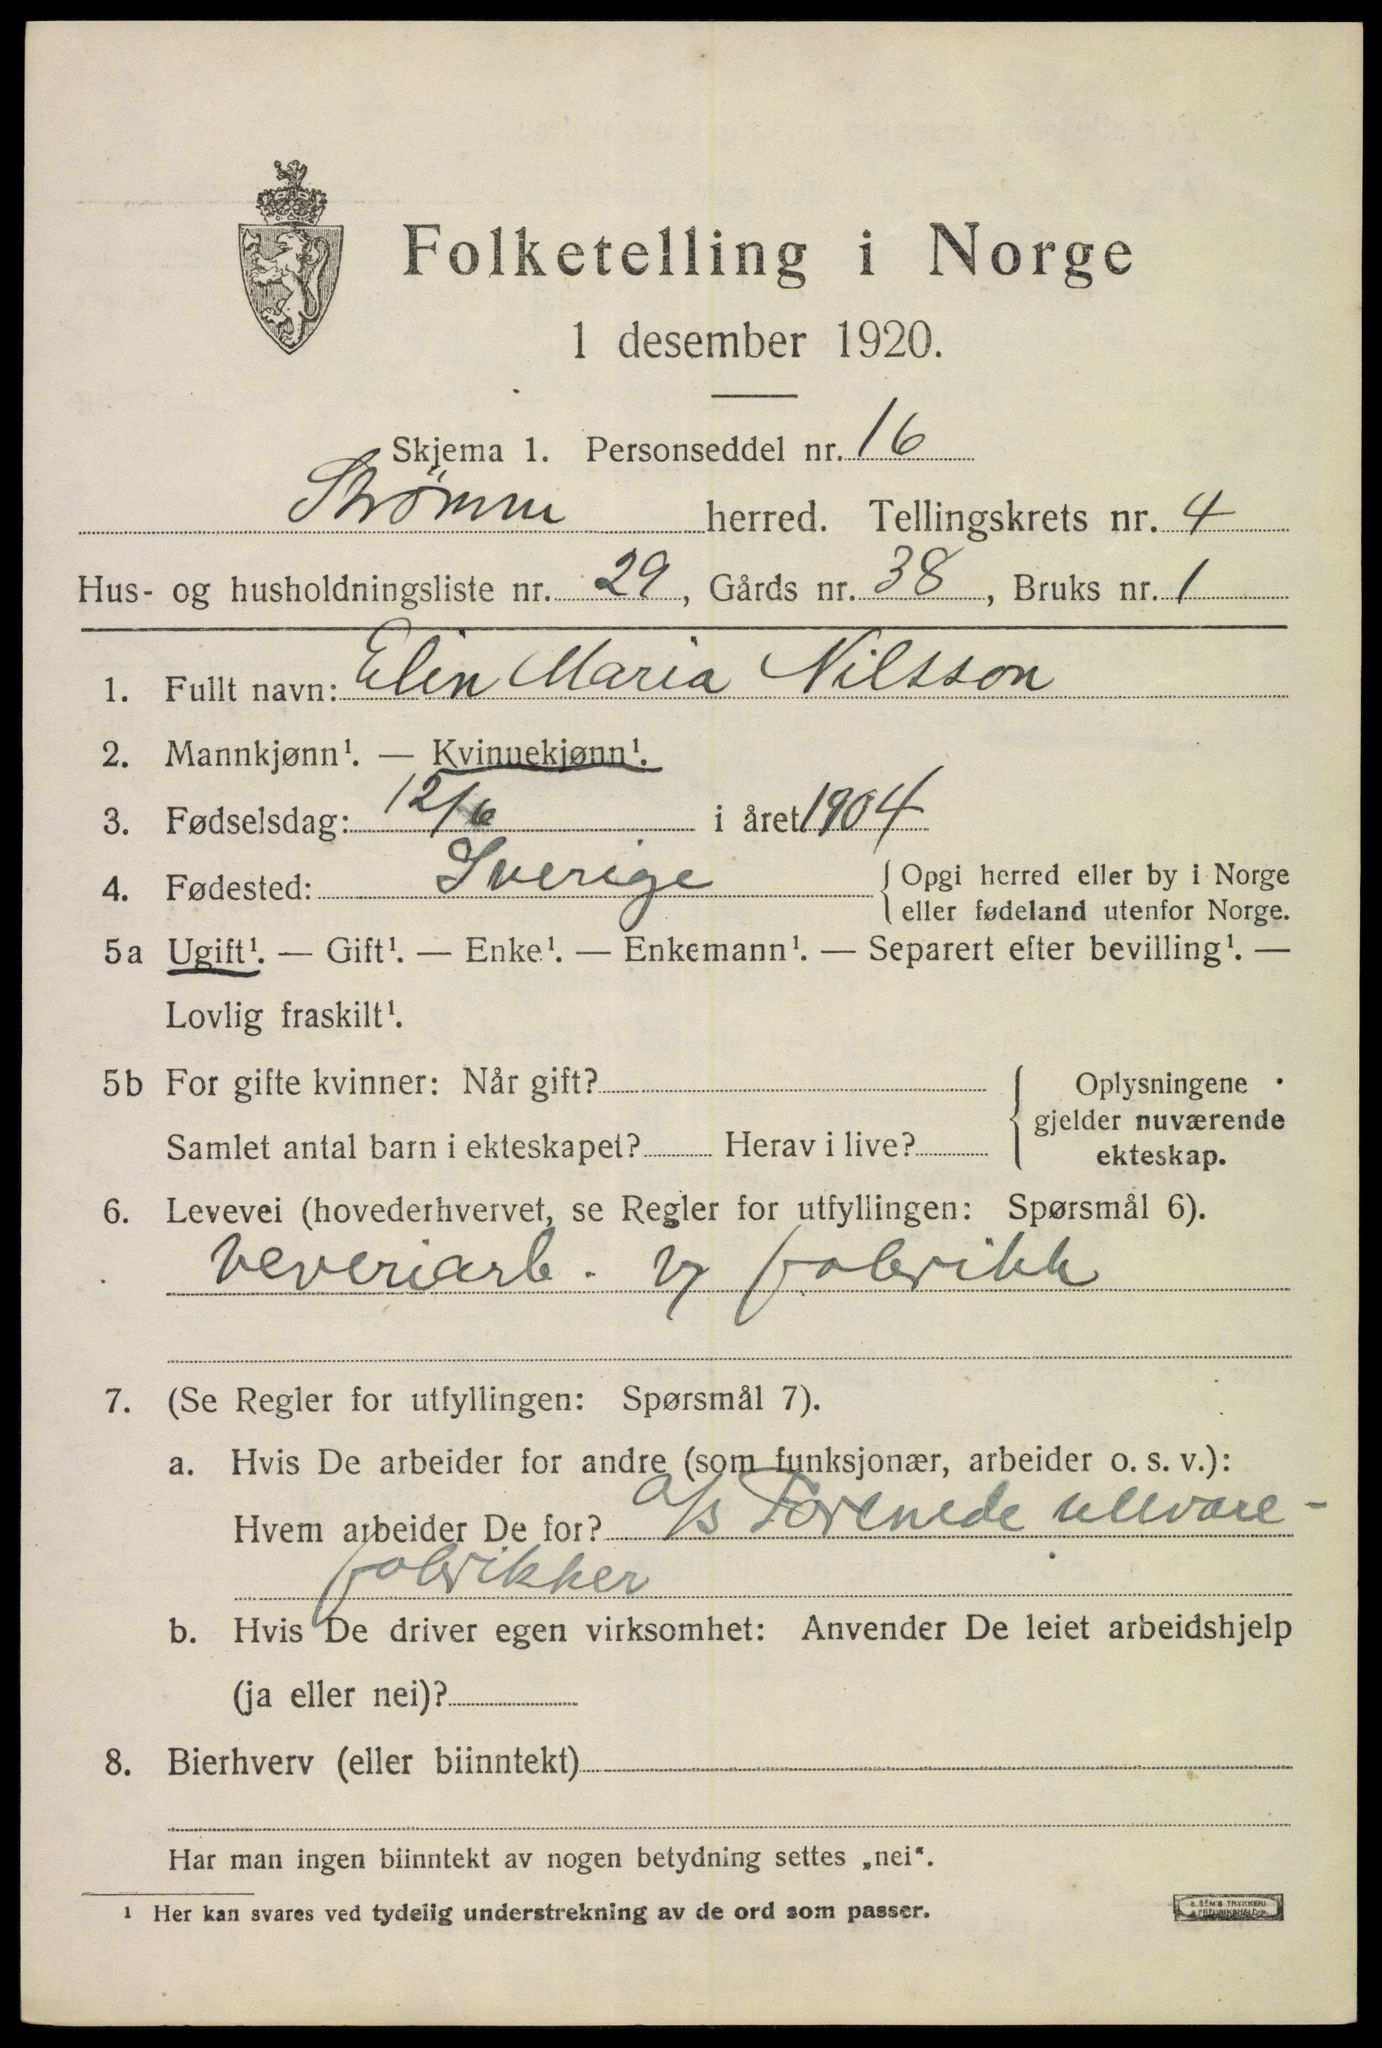 Folketelling i Norge
1 desember 1920.
Skjema 1. Personseddel nr. 16
Strømm herred. Tellingskrets nr. 4
Hus- og husholdningsliste nr. 29, Gårds nr. 38, Bruks nr. 1
1. Fullt navn: Elin Maria Nilsson
2. Mannkjønn¹. — Kvinnekjønn¹.
3. Fødselsdag: 12/6 i året 1904
4. Fødested: Sverige { Opgi herred eller by i Norge
eller fødeland utenfor Norge.
5a Ugift¹. — Gift¹. — Enke¹. — Enkemann¹. — Separert efter bevilling¹. —
Lovlig fraskilt¹.
5b For gifte kvinner: Når gift? { Oplysningene
gjelder nuværende
Samlet antal barn i ekteskapet? Herav i live?
ekteskap.
6. Levevei (hovederhvervet, se Regler for utfyllingen: Spørsmål 6).
veveriarb. v/ fabrikk
7. (Se Regler for utfyllingen: Spørsmål 7).
a. Hvis De arbeider for andre (som funksjonær, arbeider o. s. v.):
Hvem arbeider De for? a/s Forenede ullvare-
fabrikker
b. Hvis De driver egen virksomhet: Anvender De leiet arbeidshjelp
(ja eller nei)?
8. Bierhverv (eller biinntekt)
Har man ingen biinntekt av nogen betydning settes „nei“.
¹ Her kan svares ved tydelig understrekning av de ord som passer.